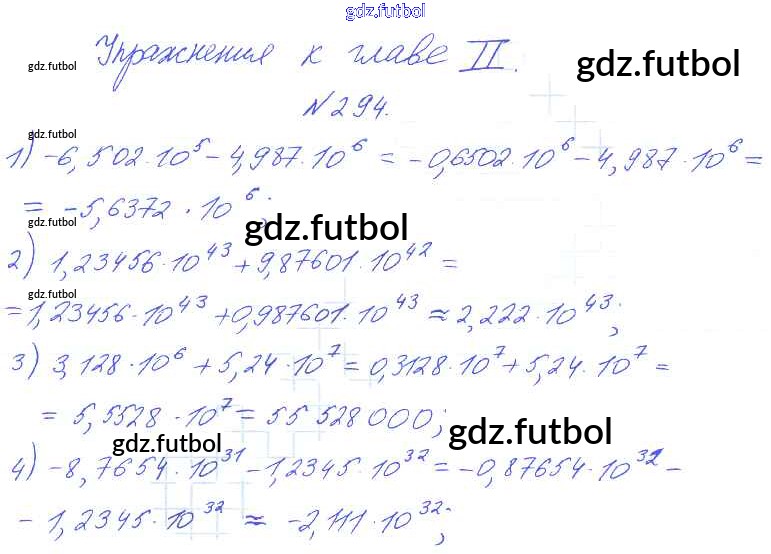 gdz.futbol
Упражнения к главе II.
gdz.futbol
gdz.futbol
№294.
gdz.futbol
1) -6,502·10⁵ - 4,987·10⁶ = -0,6502·10⁶ - 4,987·10⁶ =
= -5,6372·10⁶;
gdz.futbol
gdz.futbol
2) 1,23456·10⁴³ + 9,87601·10⁴² =
gdz.futbol
= 1,23456·10⁴³ + 0,987601·10⁴³ ≈ 2,222·10⁴³;
3) 3,128·10⁶ + 5,24·10⁷ = 0,3128·10⁷ + 5,24·10⁷ =
= 5,5528·10⁷ = 55 528 000;
gdz.futbol
gdz.futbol
4) -8,7654·10³¹ - 1,2345·10³² = -0,87654·10³² -
- 1,2345·10³² ≈ -2,111·10³²;